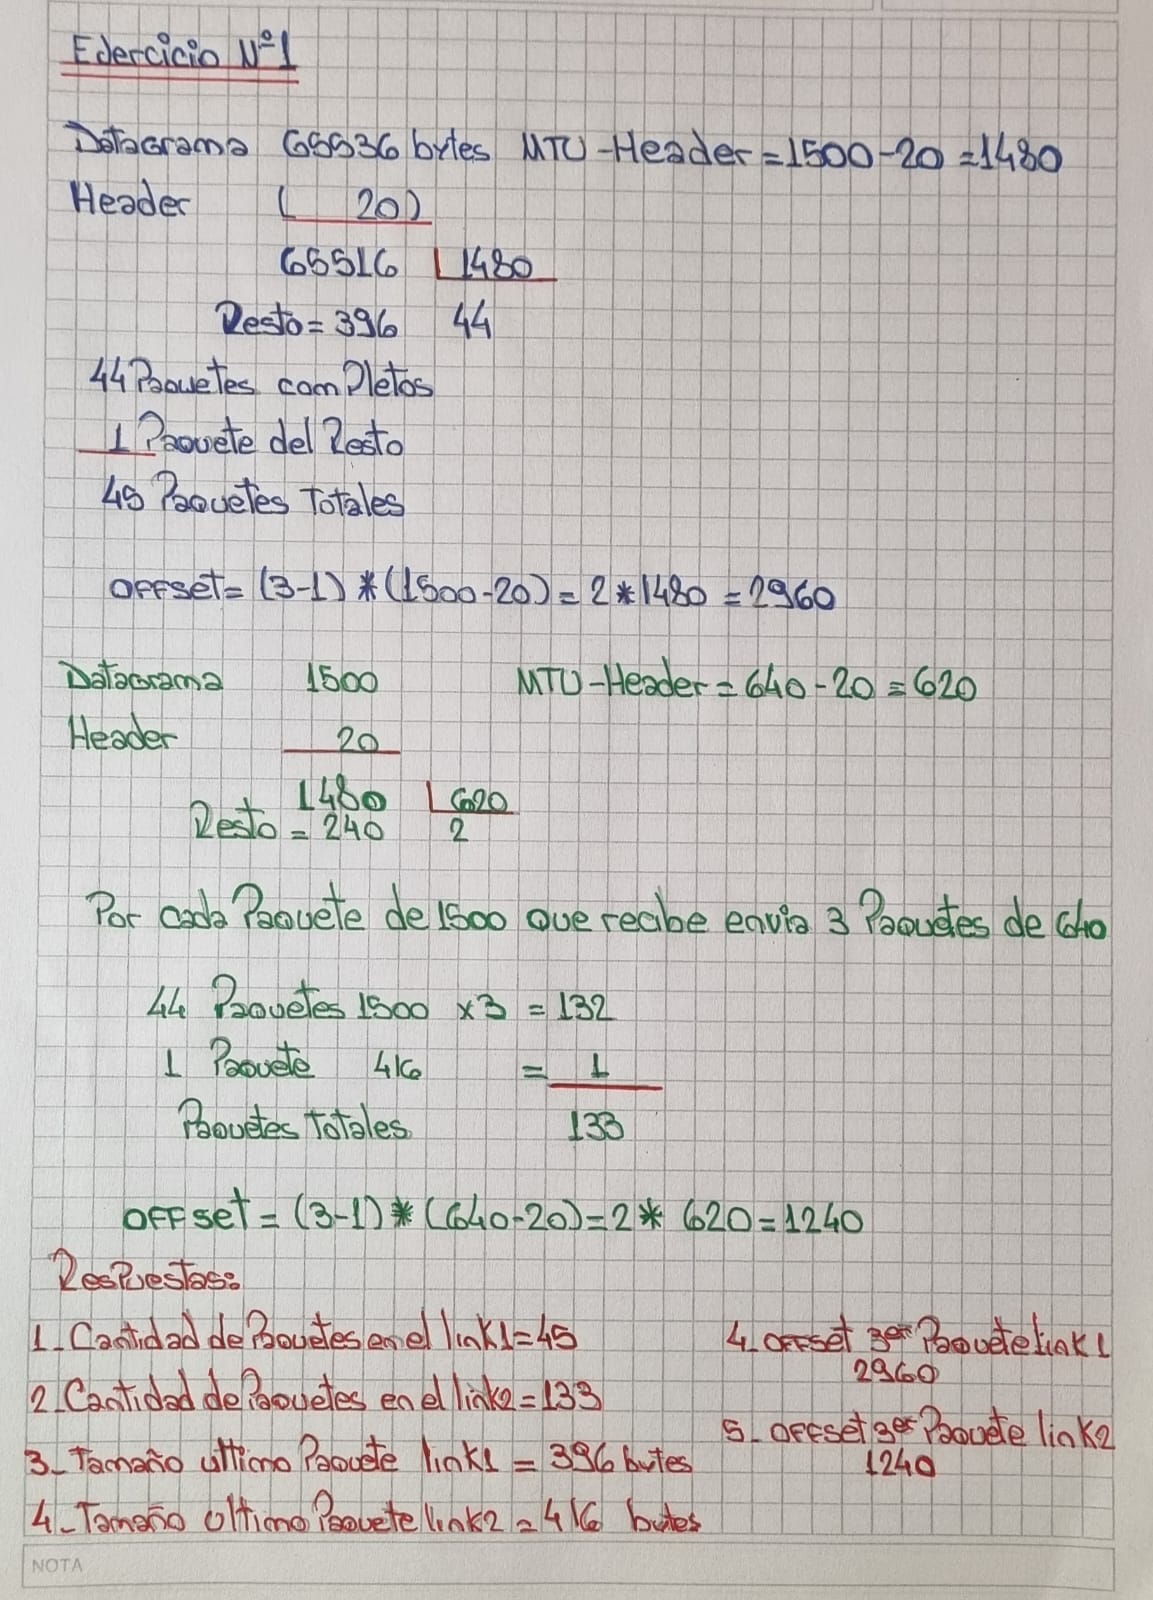 Ejercicio Nº1
Datagrama 65536 bytes MTU-Header = 1500-20 = 1480
Header ( 20)
65516 1480
Resto = 396 44
44 Paquetes completos
1 Paquete del Resto
45 Paquetes Totales
OFFset = (3-1) * (1500-20) = 2 * 1480 = 2960
Datagrama 1500 MTU-Header = 640-20 = 620
Header 20
1480 620
Resto = 240 2
Por cada Paquete de 1500 que recibe envia 3 Paquetes de 640
44 Paquetes 1500 x3 = 132
1 Paquete 416 = 1
Paquetes Totales 133
OFFset = (3-1) * (640-20) = 2 * 620 = 1240
Respuestas:
1_Cantidad de Paquetes en el link1 = 45
2_Cantidad de Paquetes en el link2 = 133
3_Tamaño ultimo Paquete link1 = 396 bytes
4_Tamaño ultimo Paquete link2 = 416 bytes
4_ offset 3er Paquete link1
2960
5_ offset 3er Paquete link2
1240
NOTA